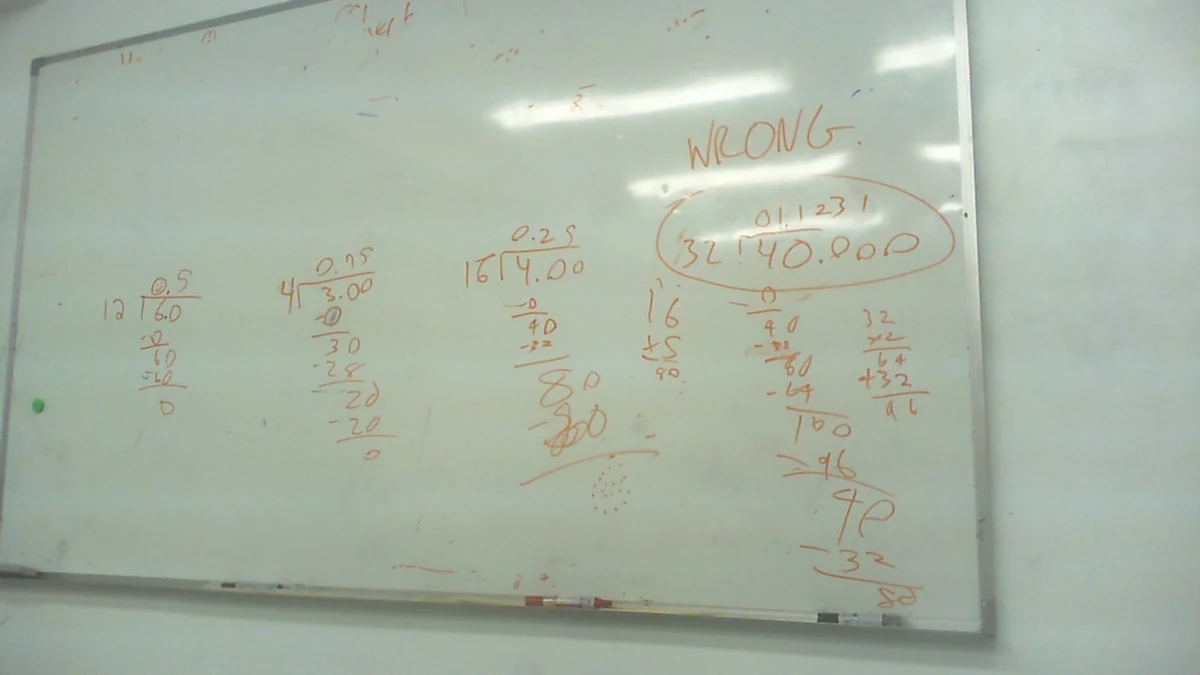 WRONG.
0.5
12 6.0
-0
60
-60
0
0.75
4 3.00
-0
30
-28
20
-20
0
0.25
16 4.00
-0
40
-32
80
-80
16
x5
80
01.1231
32 40.000
-0
40
-32
80
-64
160
-96
40
-32
80
32
x2
64
+32
96